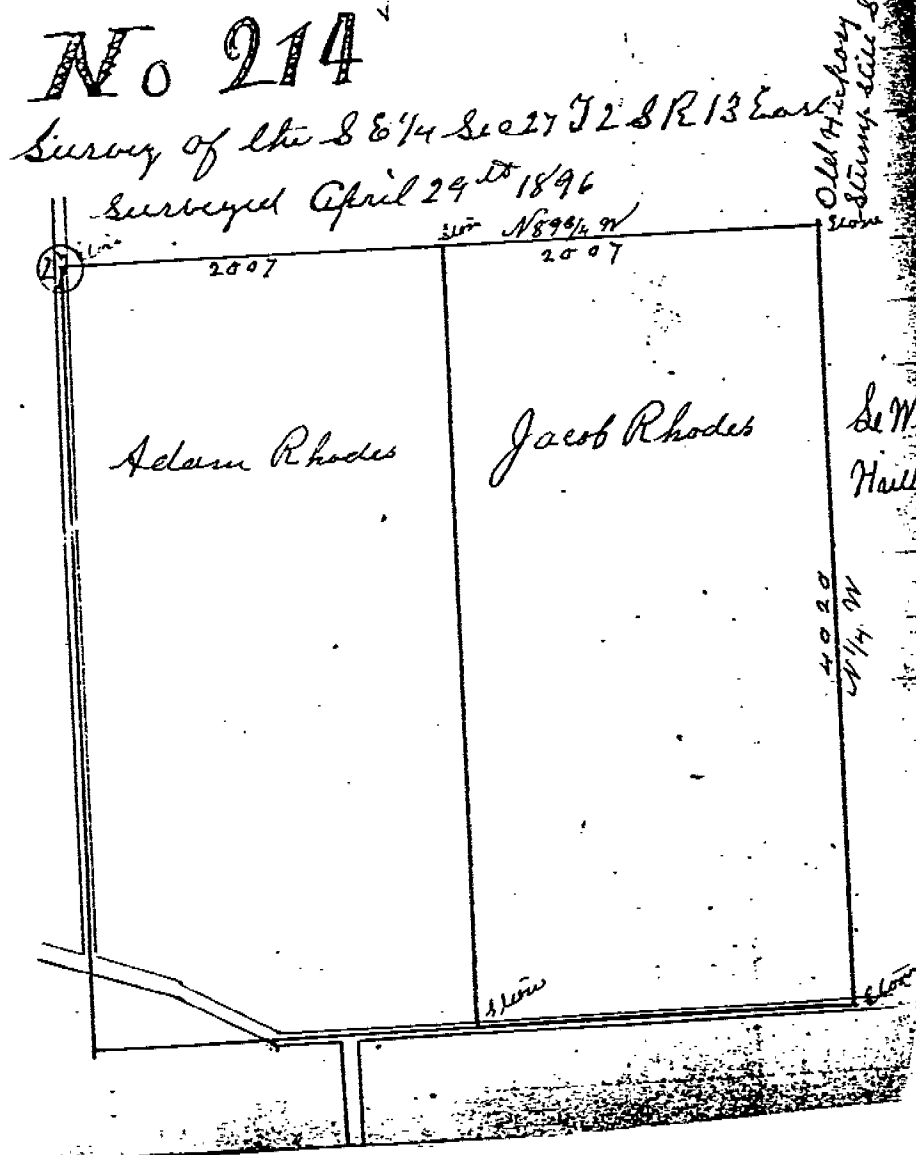 No 214
Survey of the S E 1/4 Sec 27 T 2 S R 13 East
Surveyed April 29th 1896
Old Hickory
Stump still
Stone
Stone
N 89 3/4 W
Stone
27
2007
2007
Adam Rhodes
Jacob Rhodes
4020
N 1/4 W
Stone
Stone